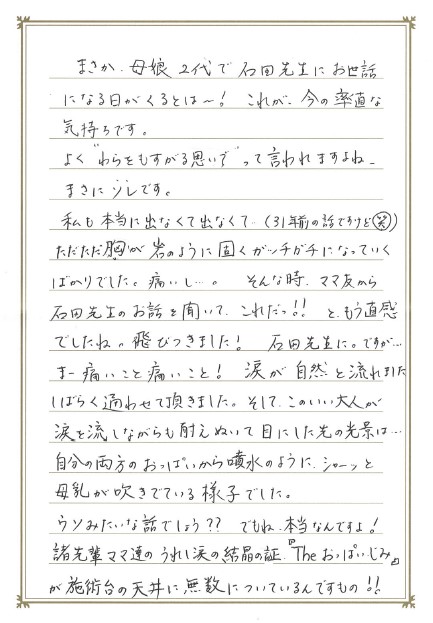 まさか、母娘2代で石田先生にお世話
になる日がくるとは〜! これが、今の率直な
気持ちです。
よく“わらをもすがる思いで”って言われますよね。
まさにソレです。
私も本当に出なくて出なくて‥(31年前の話ですけど笑)
ただただ胸が岩のように固くガッチガチになっていく
ばかりでした。痛いし…。 そんな時、ママ友から
石田先生のお話を聞いて、これだっ!! と、もう直感
でしたね。飛びつきました! 石田先生に。ですが…
まー痛いこと痛いこと! 涙が自然と流れました
しばらく通わせて頂きました。そして、このいい大人が
涙を流しながらも耐えぬいて目にした先の光景は…
自分の両方のおっぱいから噴水のように、シャーッと
母乳が吹きでている様子でした。
ウソみたいな話でしょう?? でもね、本当なんですよ!
諸先輩ママ達のうれし涙の結晶の証、『Theおっぱいじみ』
が施術台の天井に無数についているんですもの!!